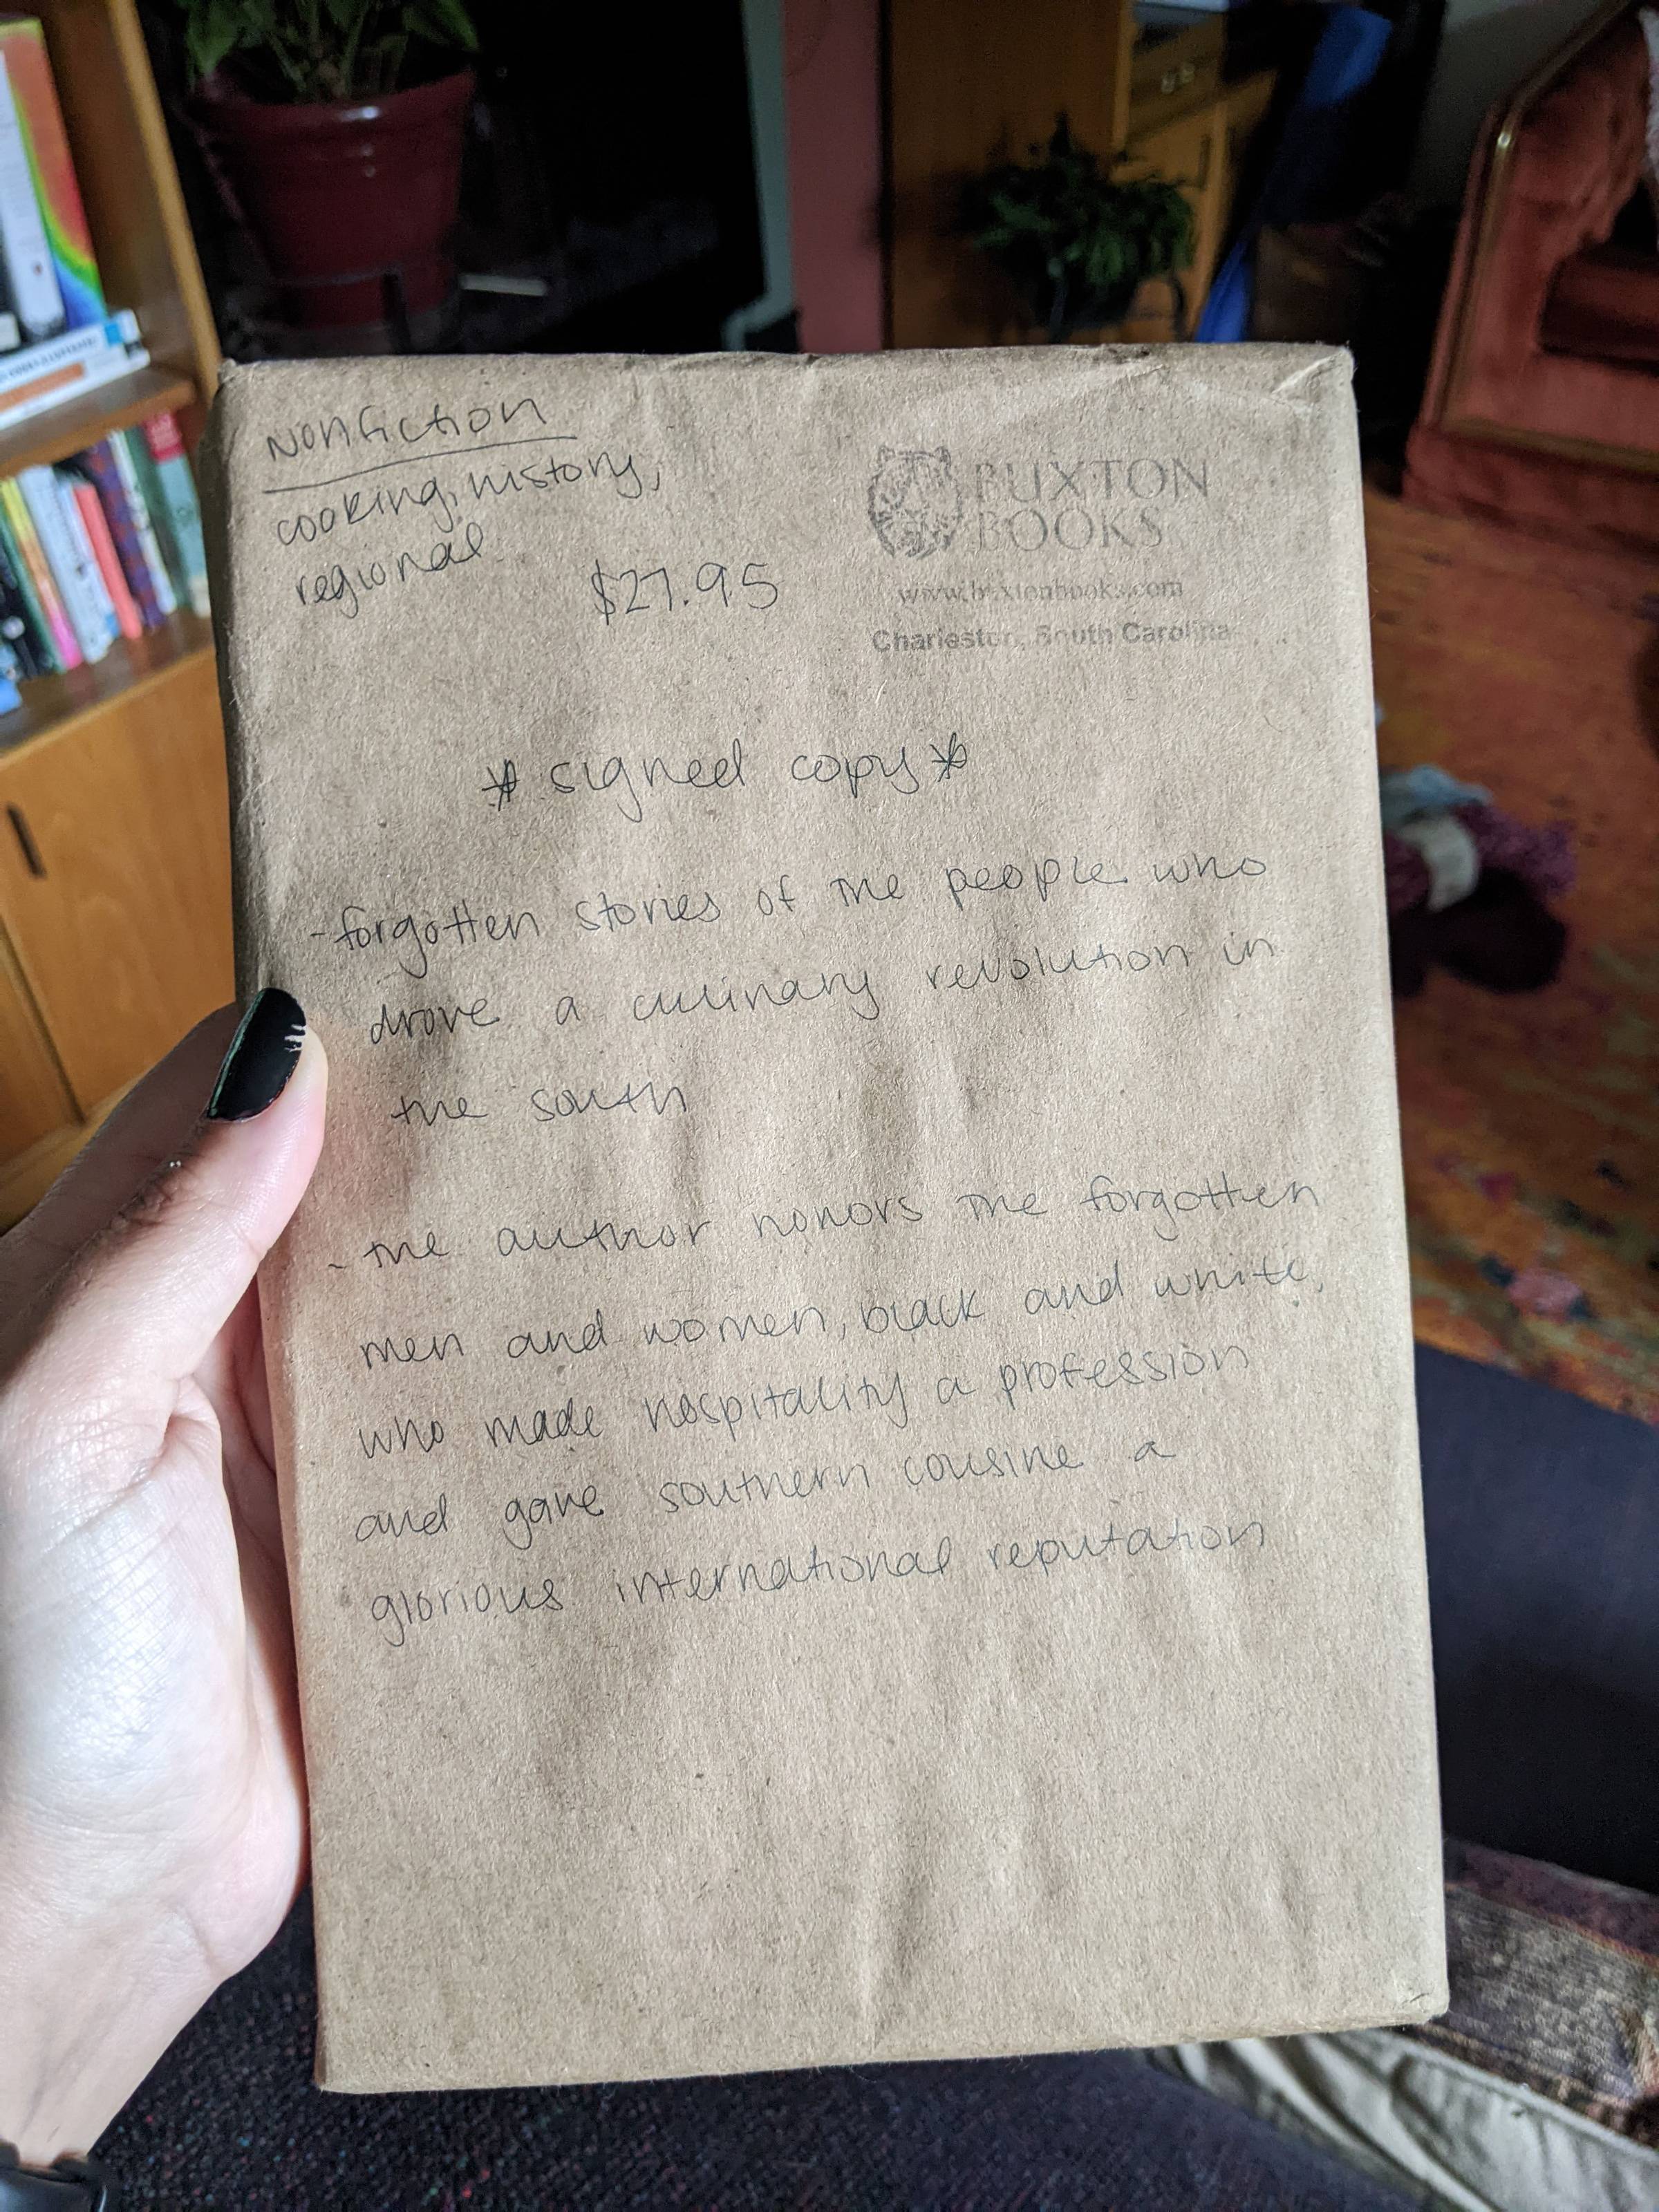 Nonfiction
cooking, history,
regional
$27.95
BUXTON
BOOKS
www.buxtonbooks.com
Charleston, South Carolina
* signed copy *
- forgotten stories of the people who
drove a culinary revolution in
the south
- the author honors the forgotten
men and women, black and white,
who made hospitality a profession
and gave southern cousine a
glorious international reputation